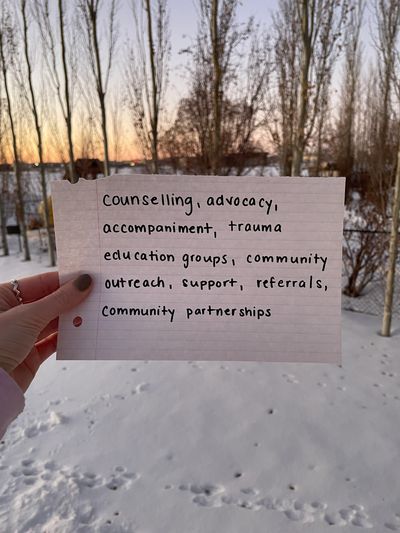 Counselling, advocacy,
accompaniment, trauma
education groups, community
outreach, support, referrals,
Community partnerships